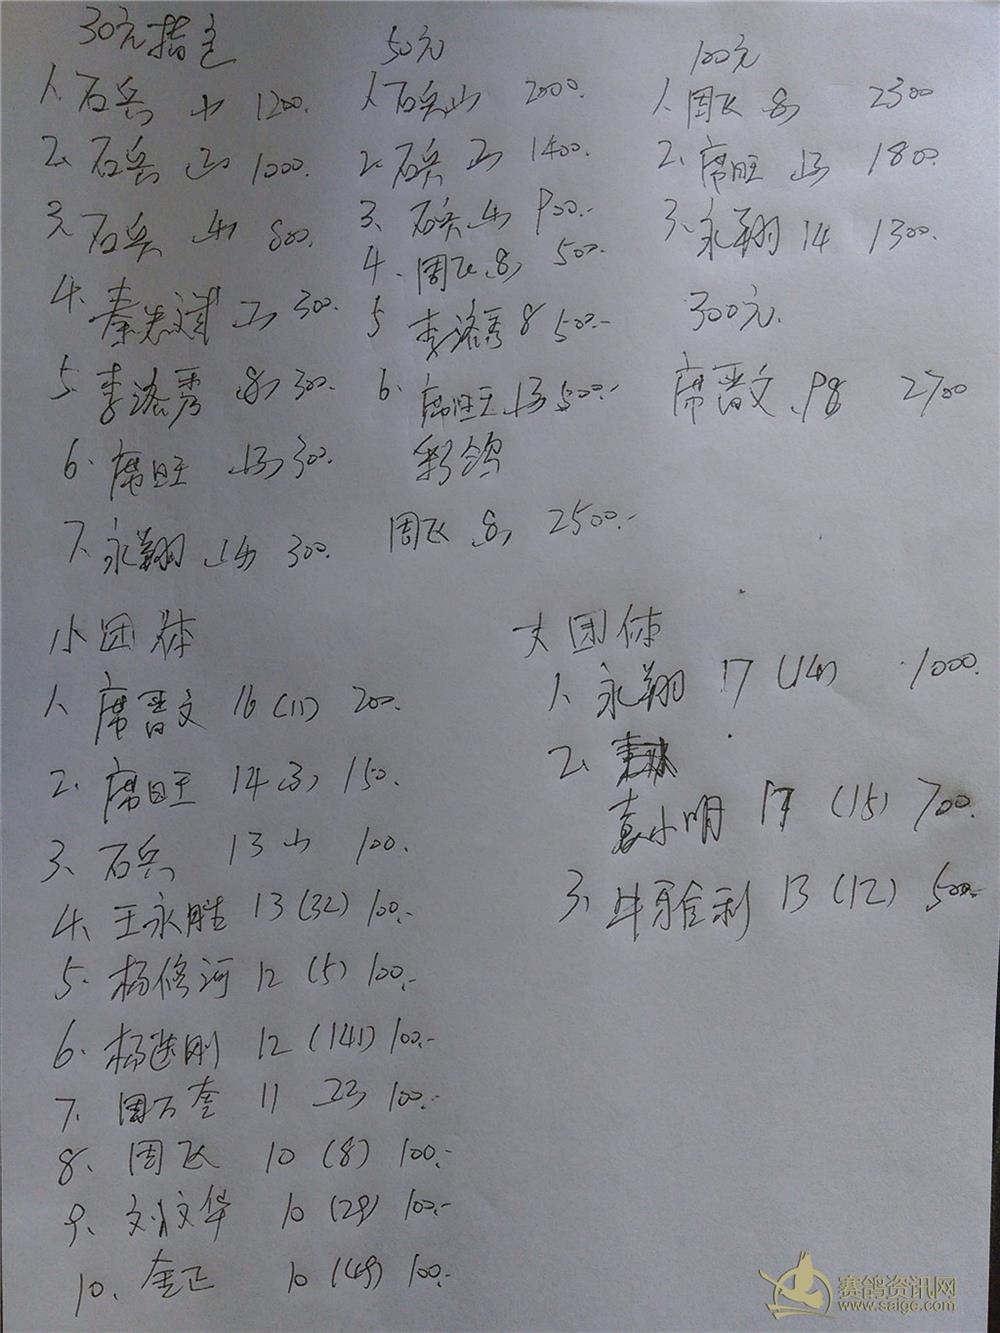 30元指定
1、石兵 (1) 1200.
2、石兵 (2) 1000.
3、石兵 (4) 800.
4、秦志斌 300.
5、李洛秀 (8) 300.
6、席旺 (13) 300.
7、永翔 (14) 300.
50元
1、石兵 (1) 2000.
2、石兵 (2) 1400.
3、石兵 (4) 900.-
4、周飞 (8) 500.-
5 李洛秀 8 500.-
6、席旺 (13) 500.-
彩鸽
周飞 (8) 2500.-
100元
1、周飞 (8) 2300
2、席旺 (13) 1800.
3、永翔 14 1300.
300元.
席晋文 98 2700
小团体
1、席晋文 16 (11) 200.
2、席旺 14 (3) 150.
3、石兵 13 (1) 100.
4、王永胜 13 (32) 100.-
5、杨修河 12 (5) 100.-
6、杨进刚 12 (141) 100.-
7、周万奎 11 (23) 100.-
8、周飞 10 (8) 100.-
9、刘文华 10 (29) 100.-
10、金正 10 (49) 100.-
大团体
1、永翔 17 (14) 1000.
2、
袁小明 17 (15) 700.
3、牛引利 13 (12) 500.-
赛鸽资讯网
www.saige.com